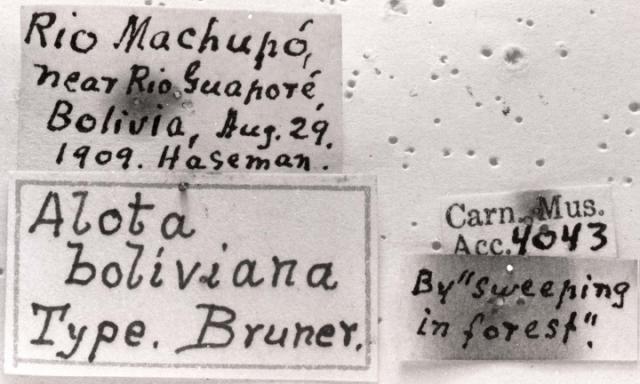 Rio Machupó,
near Rio Guaporé,
Bolivia, Aug. 29.
1909. Haseman.
Alota
boliviana
Type. Bruner.
Carn. Mus.
Acc. 4043
By "sweeping
in forest".